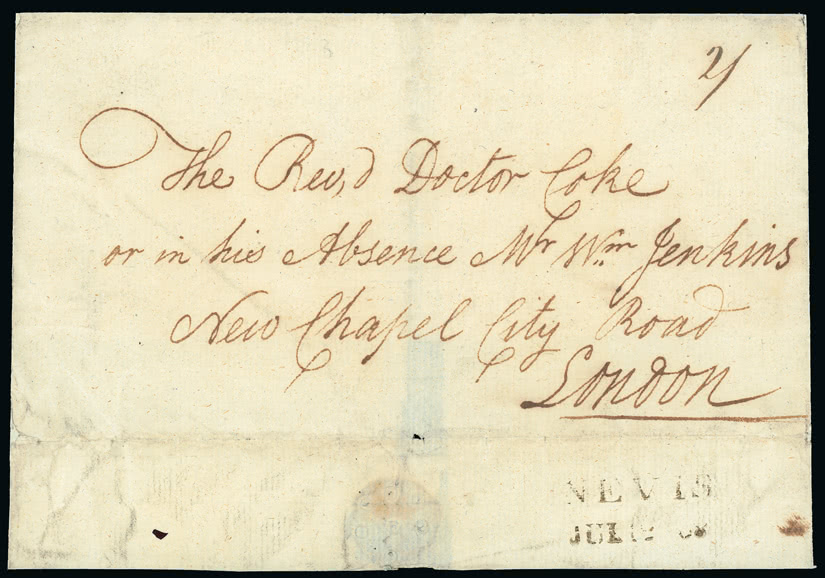 2/
The Rev,d Doctor Coke
or in his Absence Mr Wm Jenkins
New Chapel City Road
London
NEVIS
JUL